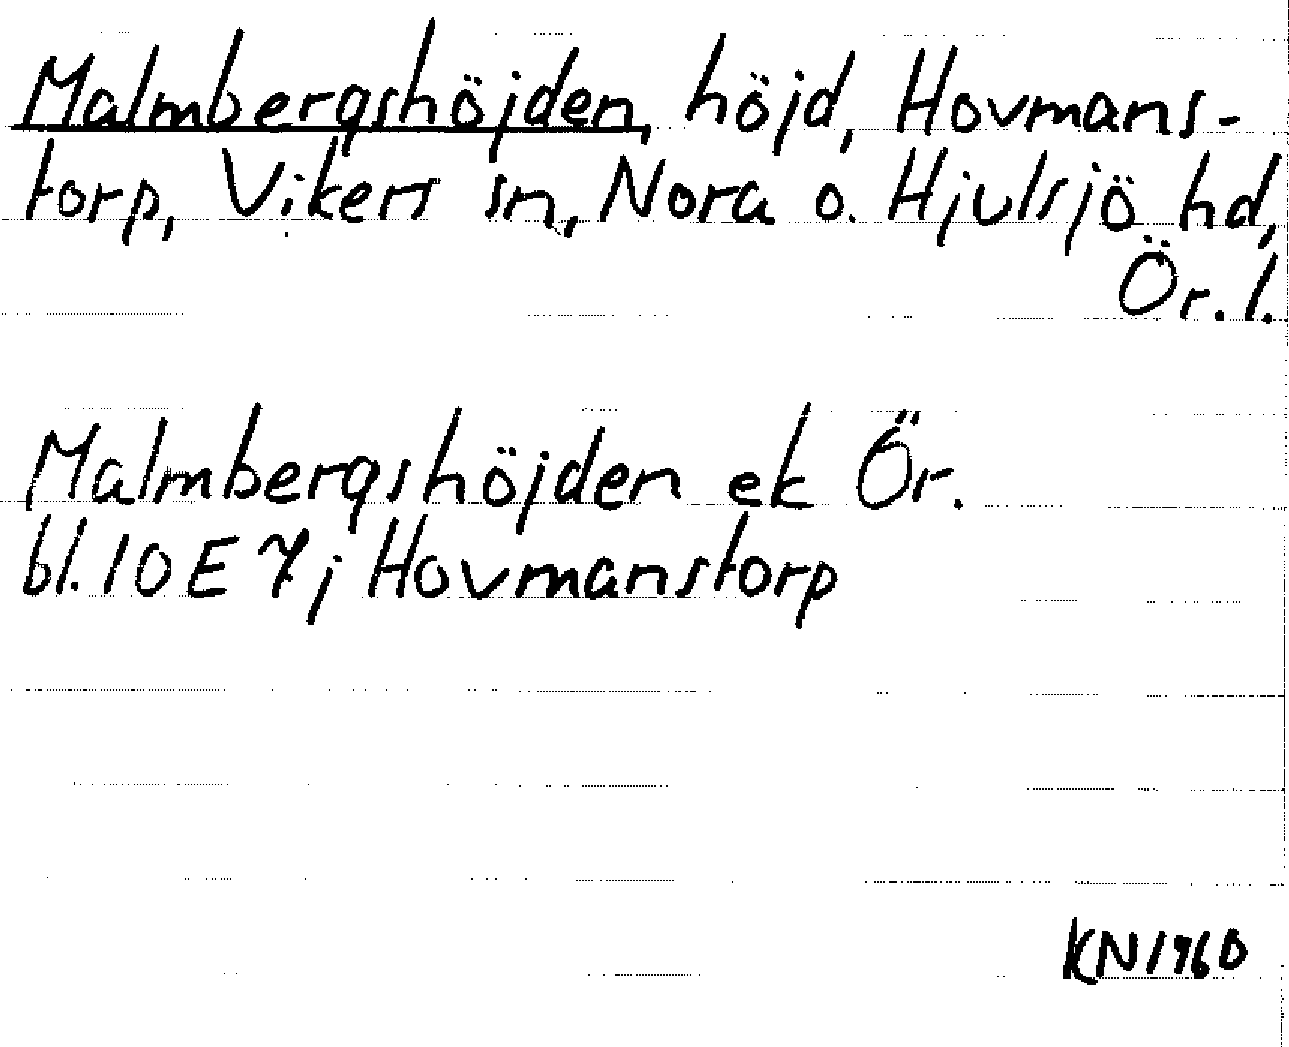 Malmbergshöjden, höjd, Hovmans-
torp, Vikers sn, Nora o. Hjulsjö hd,
Ör. l.
Malmbergshöjden ek Ör.
bl. 10E 7j Hovmanstorp
KN1960